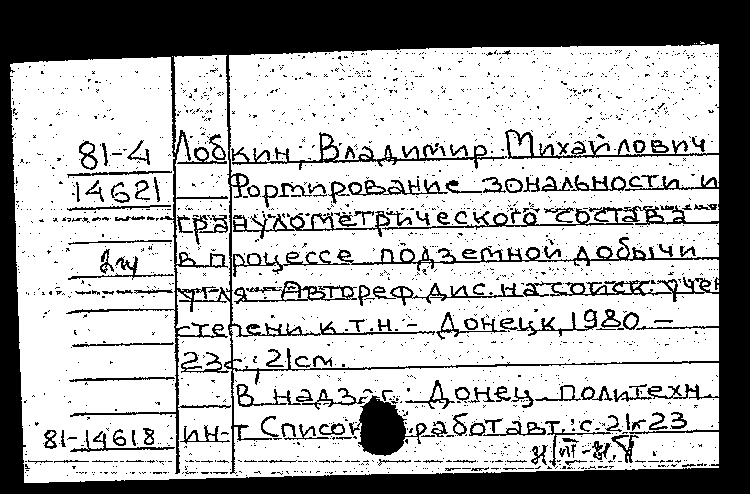 81-4 Лобкин, Владимир Михайлович
14621 Формирование зональности и
гранулометрического состава
2 в процессе подземной добычи
угля. Автореф. дис. на соиск. учен
степени к.т.н. - Донецк, 1980. -
23с.; 21см.
В надзаг.: Донец. политехн.
81-14618 ин-т Список работ авт.: с. 21-23